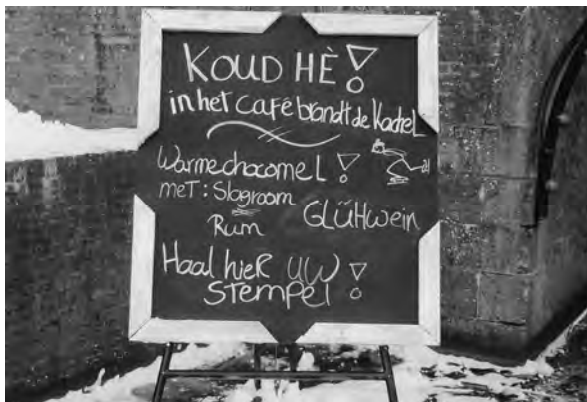 KOUD HÈ!
in het café brandt de kachel
Warme chocomel!
met: Slagroom
Rum
GLÜHwein
Haal hier uw
stempel!